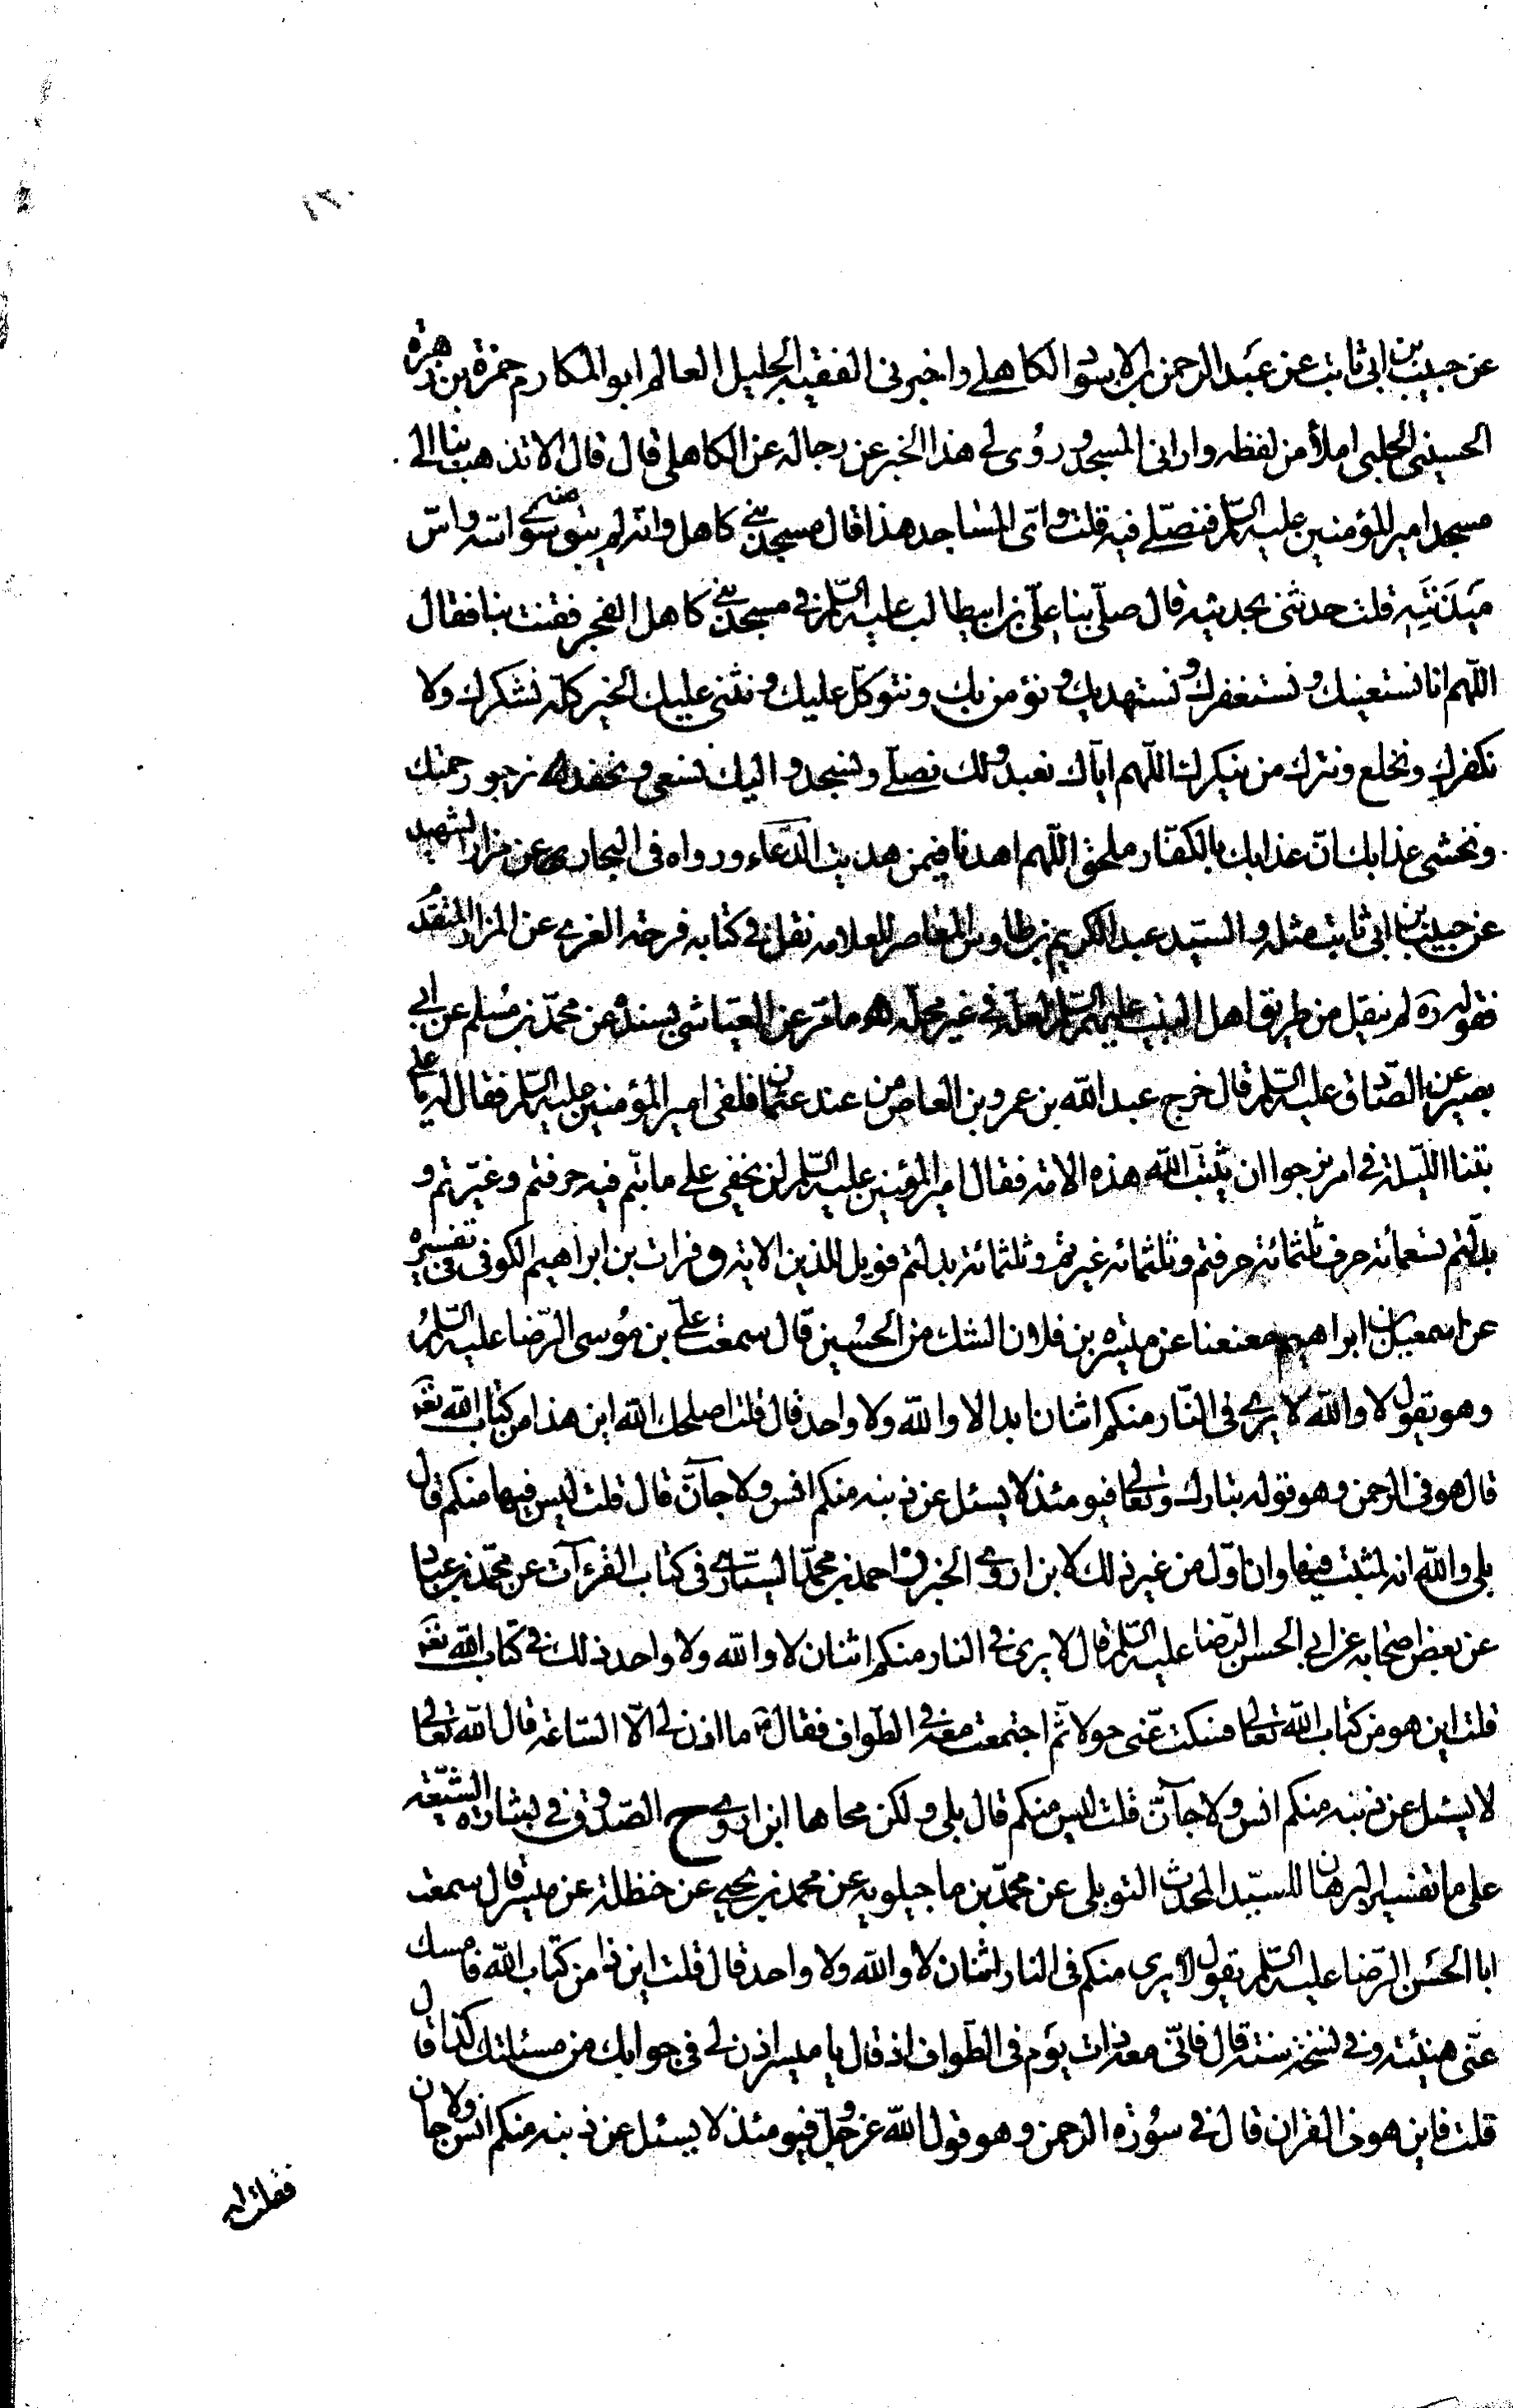 عن حبيب بن ابى ثابت عن عبد الرحمن بن الاسود الكاهلى واخبرنى الفقيه الجليل العالم ابو المكارم حمزة بن زهرة
الحسينى الحلبى املاء من لفظه وارانى المسجد وروى لى هذا الخبر عن رجاله عن الكاهلى قال قال الا تذهب بنا الى
مسجد امير المؤمنين عليه السلم فنصلى فيه قلت واى المساجد هذا قال مسجد بنى كاهل وانه لم يبق منه سوى اسه واس
ميذنته قلت حدثنى بحديثه قال صلى بنا على بن ابيطالب عليه السلم فى مسجد بنى كاهل الفجر فقنت بنا فقال
اللهم انا نستعينك ونستغفرك ونستهديك ونؤمن بك ونتوكل عليك ونثنى عليك الخير كله نشكرك ولا
نكفرك ونخلع ونترك من ينكرك اللهم اياك نعبد ولك نصلى ونسجد واليك نسعى ونحفد نرجو رحمتك
ونخشى عذابك ان عذابك بالكفار ملحق اللهم اهدنا فيمن هديت الدعاء ورواه فى البحار عن مزار الشهيد
عن حبيب بن ابى ثابت مثله والسيد عبد الكريم بن طاوس المعاصر للعلامه نقل فى كتابه فرحة الغرى عن المزار المتقدم
فقوله ره لم ينقل من طريق اهل البيت عليهم السلم لعله فى غير محله ما مر عن العياشى بسنده عن محمد بن مسلم عن ابى
بصير عن الصادق عليه السلم قال خرج عبد الله بن عمرو بن العاص من عند عثمان فلقى امير المؤمنين عليه السلم فقال له يا على
بتنا الليلة فى امر نرجوا ان يثبت الله هذه الامة فقال امير المؤمنين عليه السلم لن يخفى على ما بتم فيه حرفتم وغيرتم و
بدلتم تسعمائة حرف ثلثمائة حرفتم وثلثمائة غيرتم وثلثمائة بدلتم فويل للذين الاية ق فرات بن ابراهيم الكوفى فى تفسيره
عن اسمعيل بن ابراهيم معنعنا عن ميسره بن فلان الشك من الحسين قال سمعت على بن موسى الرضا عليه السلم
وهو يقول لا والله لا يرى فى النار منكم اثنان ابدا لا والله ولا واحد قال قلت اصلحك الله اين هذا من كتاب الله تعا
قال هو فى الرحمن وهو قوله تبارك وتعالى فيومئذ لا يسئل عن ذنبه منكم انس ولا جان قال قلت ليس فيها منكم قال
بلى والله انه لمثبت فيها وان اول من غير ذلك لابن اروى الخبر احمد بن محمد السيارى فى كتاب القرءات عن محمد بن على
عن بعض اصحابه عن ابى الحسن الرضا عليه السلم قال لا يرى فى النار منكم اثنان لا والله ولا واحد ذلك فى كتاب الله تعا
قلت اين هو من كتاب الله تعالى فسكت عنى حولا ثم اجتمعت معه فى الطواف فقال ما اذن لى الا الساعة قال الله تعالى
لا يسئل عن ذنبه منكم انس ولا جان قلت ليس منكم قال بلى ولكن محاها ابن اروى ح الصدوق فى بشارة الشيعة
على ما تفسير البرهان للسيد المحدث التوبلى عن محمد بن ماجيلويه عن محمد بن يحيى عن حنظلة عن ميسر قال سمعت
ابا الحسن الرضا عليه السلم يقول لا يرى منكم فى النار اثنان لا والله ولا واحد قال قلت اين ذا من كتاب الله فامسك
عنى هنيئة وفى نسخة سنة قال فانى معه ذات يوم فى الطواف اذ قال يا ميسر اذن لى فى جوابك من مسئلتك كذا قال
قلت فاين هو فى القران قال فى سورة الرحمن وهو قول الله عز وجل فيومئذ لا يسئل عن ذنبه منكم انس ولا جان
فقلت له